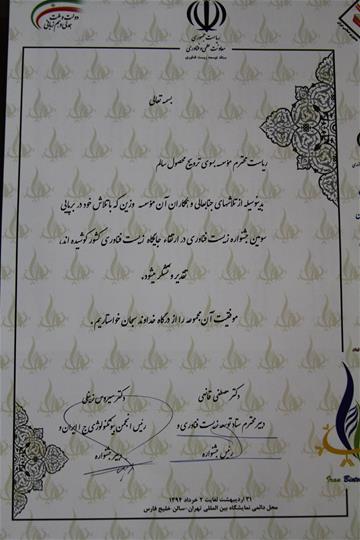 دولت و ملت
همدلی و هم زبانی
ریاست جمهوری
معاونت علمی و فناوری
ستاد توسعه زیست فناوری
بسمه تعالی
ریاست محترم مؤسسه بسوی ترویج محصول سالم
بدینوسیله از تلاشهای جنابعالی و همکاران آن مؤسسه وزین که با تلاش خود در برپایی
سومین جشنواره زیست فناوری در ارتقاء جایگاه زیست فناوری کشور کوشیده اند،
تقدیر و تشکر میشود.
موفقیت آن مجموعه را از درگاه خداوند سبحان خواستاریم.
دکتر مصطفی قانعی
دبیر محترم ستاد توسعه زیست فناوری و
رئیس جشنواره
دکتر سیروس زینلی
رئیس انجمن بیوتکنولوژی ج ا ایران و
دبیر جشنواره
Iran Biote
۳۱ اردیبهشت لغایت ۲ خرداد ۱۳۹۴
محل دائمی نمایشگاه بین المللی تهران -سالن خلیج فارس